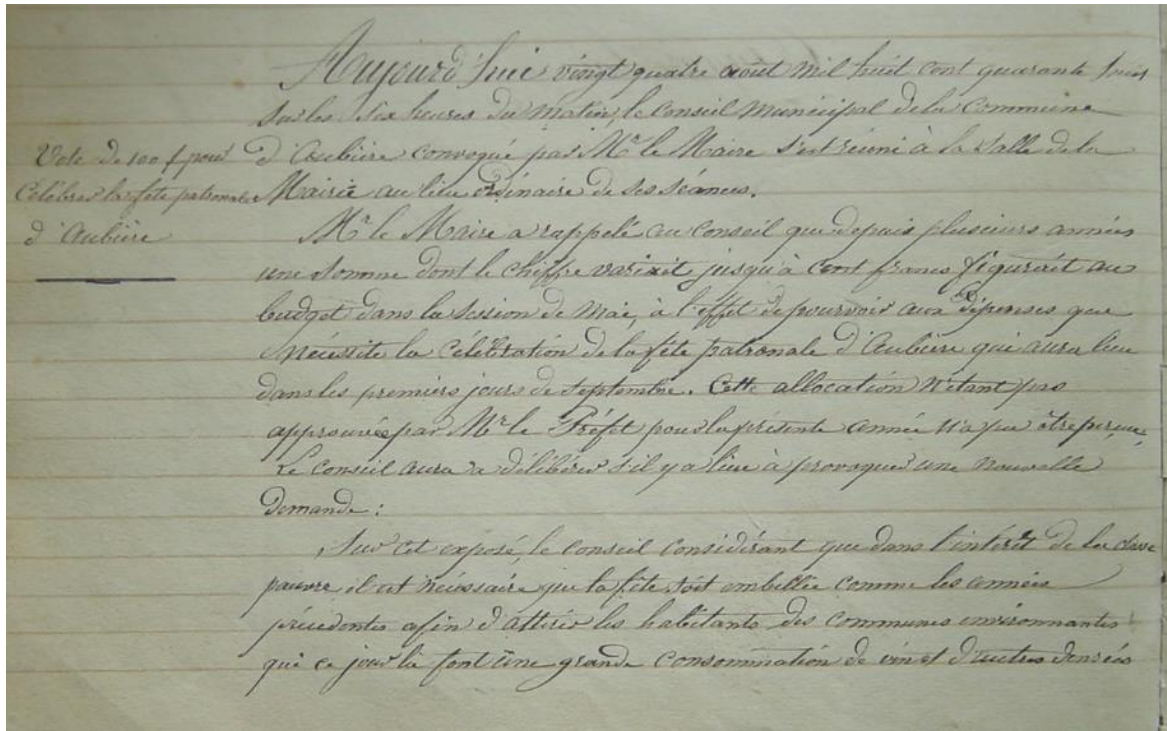 Aujourd'hui vingt quatre août mil huit cent quarante huit
sur les six heures du matin, le Conseil Municipal de la Commune
d'Aubière convoqué par Mr le Maire s'est réuni à la salle de la
Mairie au lieu ordinaire de ses séances.
Vote de 100 f pour
Célébrer la fête patronale
d'Aubière
Mr le Maire a rappelé au Conseil que depuis plusieurs années
une somme dont le chiffre variait jusqu'à cent francs figurait au
budget dans la session de Mai, à l'effet de pourvoir aux dépenses que
nécessite la Célébration de la fête patronale d'Aubière qui aura lieu
dans les premiers jours de septembre. Cette allocation n'étant pas
approuvée par Mr le Préfet pour la présente année n'a pu être perçue,
Le conseil aura a délibérer s'il y a lieu à provoquer une nouvelle
demande :
Sur cet exposé, le Conseil Considérant que dans l'intérêt de la classe
pauvre il est nécessaire que la fête soit embellie comme les années
précédentes afin d'attirer les habitants des communes environnantes
qui ce jour là font une grande consommation de vin et d'autres denrées